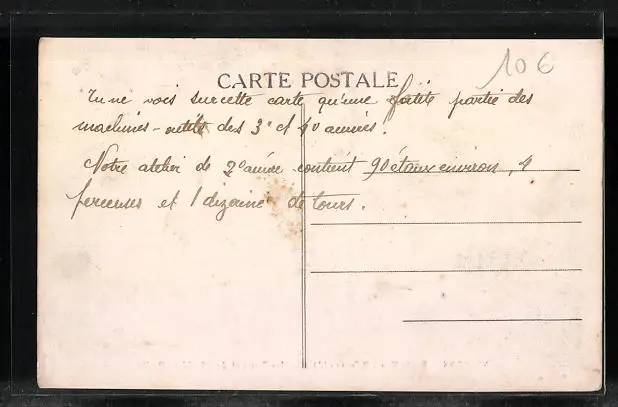 10 €
CARTE POSTALE
Tu ne vois sur cette carte qu'une petite partie des
machines-outils des 3e et 4e années.
Notre atelier de 2e année contient 90 étaux environ, 4
perceuses et 1 dizaine de tours.